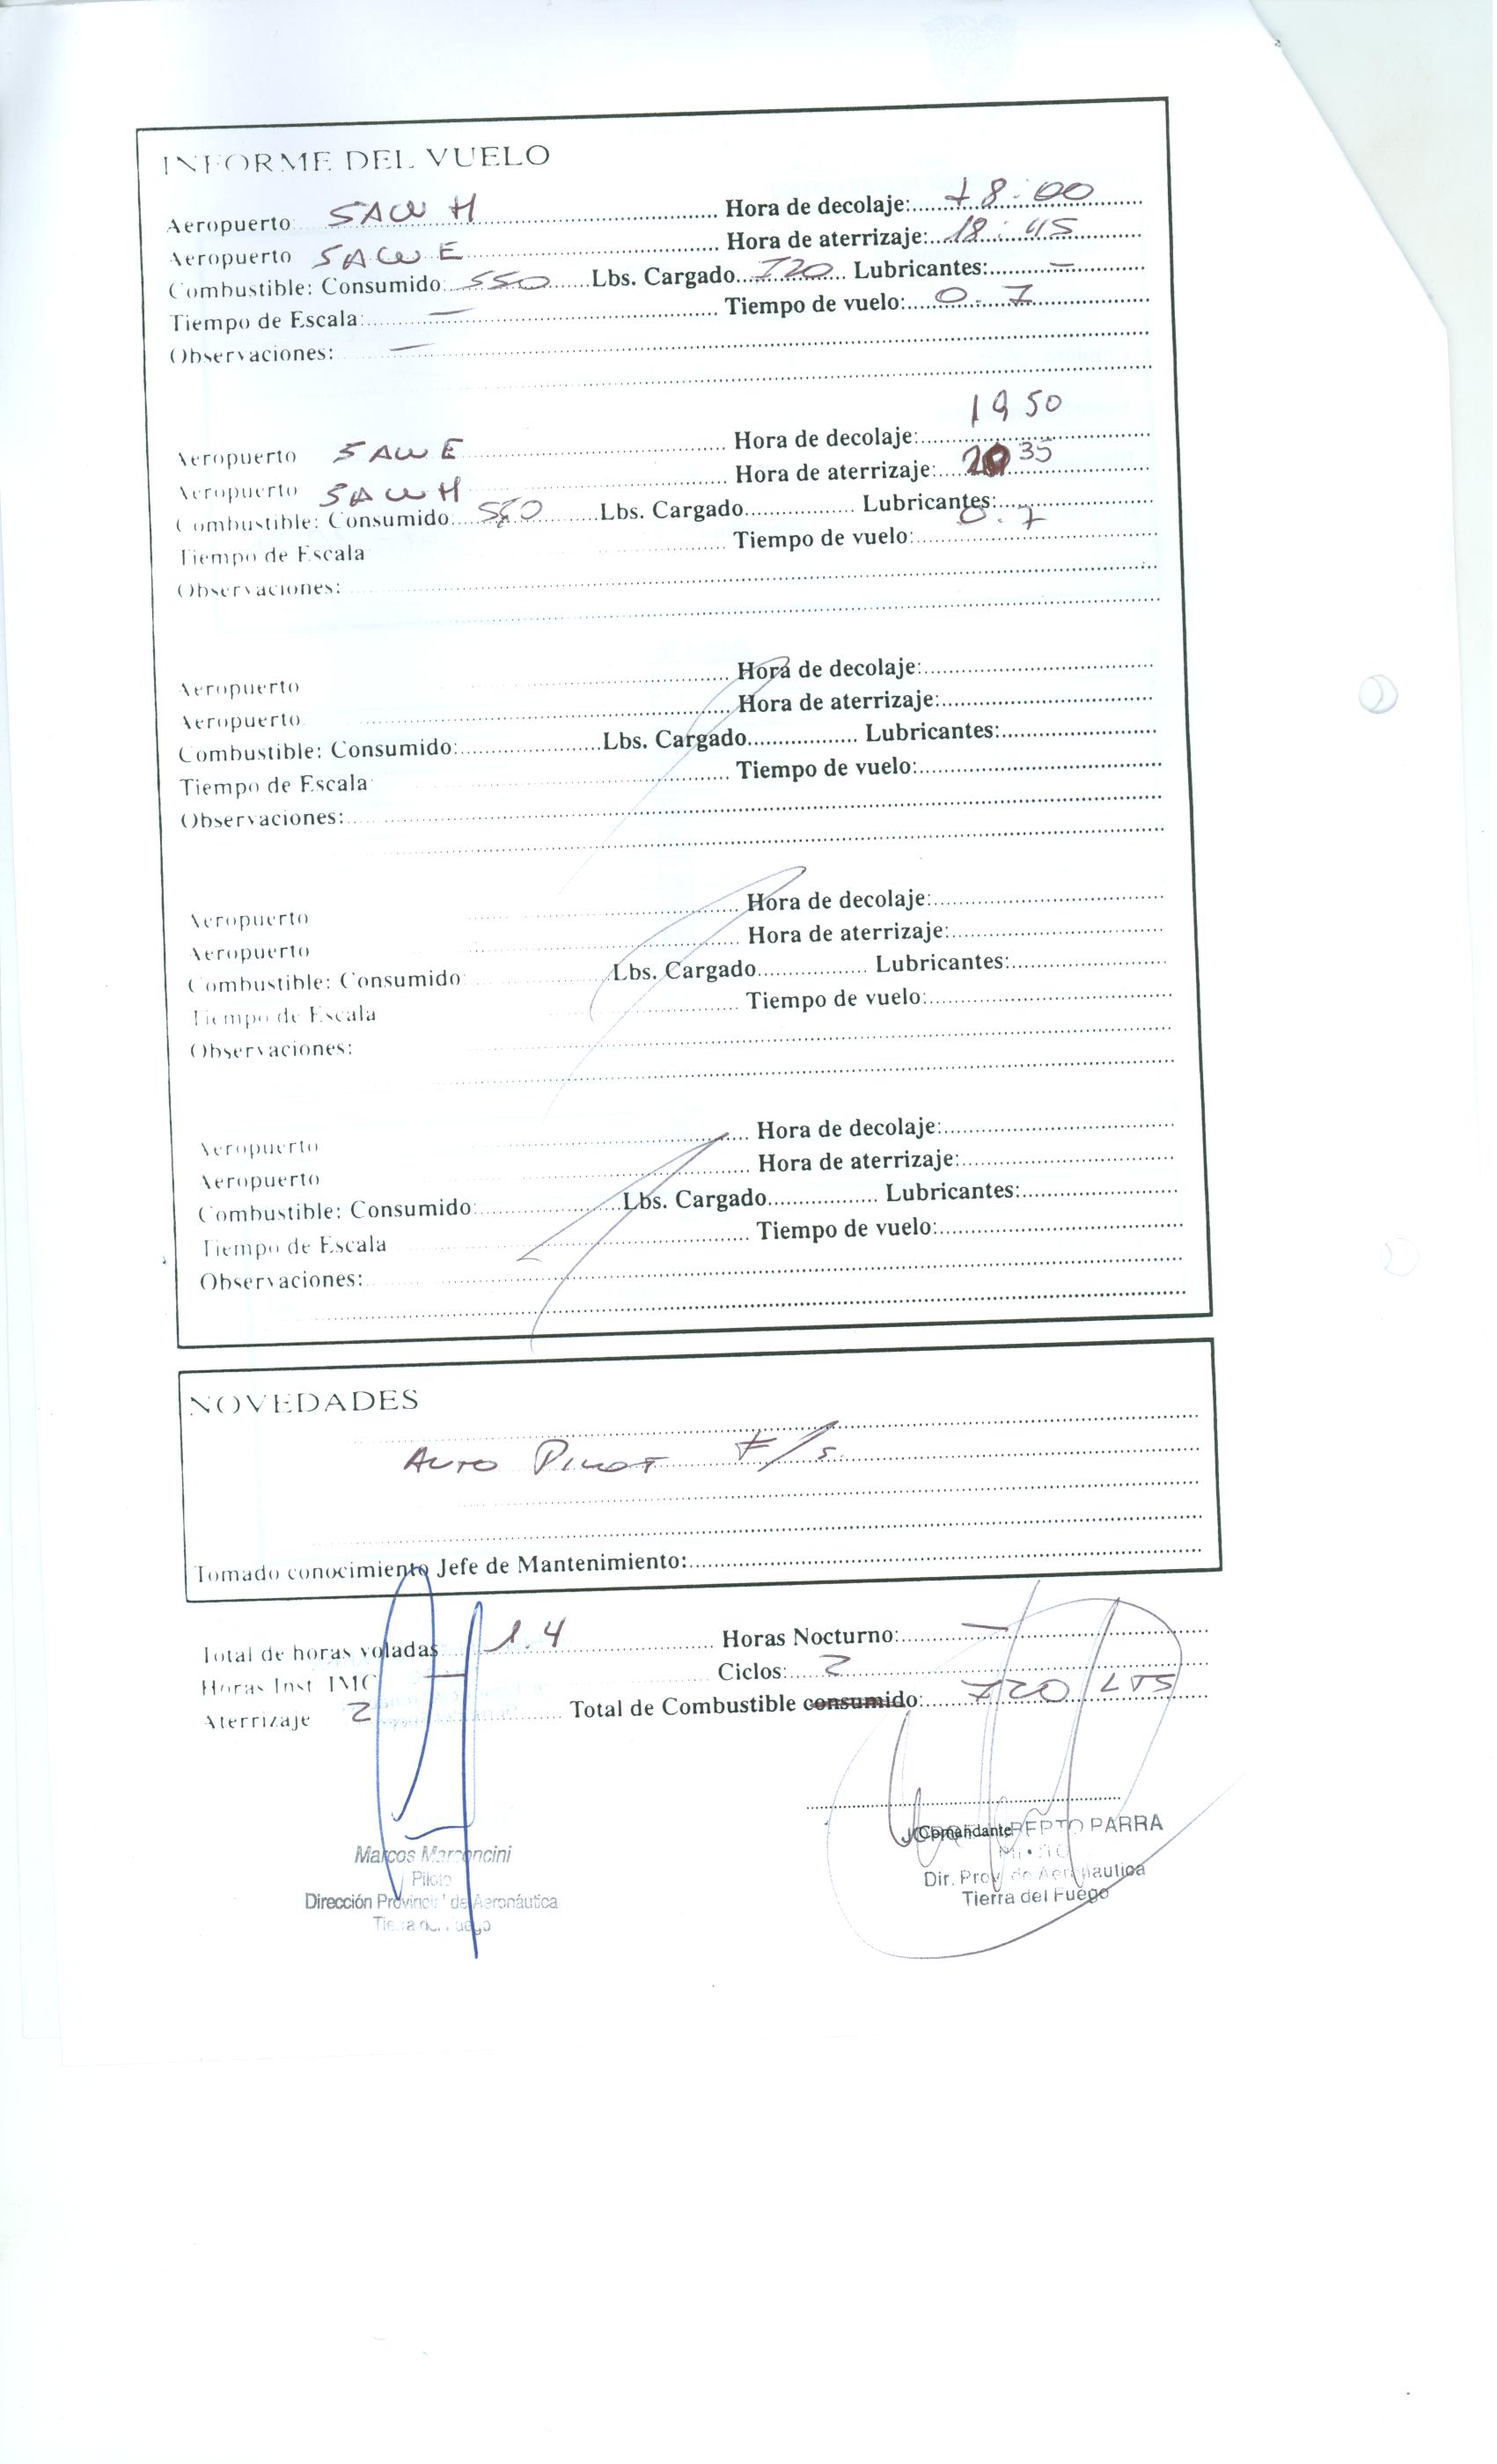 INFORME DEL VUELO
Aeropuerto: SAWH Hora de decolaje: 18:00
Aeropuerto SAWE Hora de aterrizaje: 18:45
Combustible: Consumido: 550 Lbs. Cargado 720 Lubricantes: —
Tiempo de Escala: — Tiempo de vuelo: 0.7
Observaciones: —
19 50
Aeropuerto SAWE Hora de decolaje:
Aeropuerto SAWH Hora de aterrizaje: 20 35
Combustible: Consumido: 550 Lbs. Cargado Lubricantes:
Tiempo de Escala Tiempo de vuelo: 0.7
Observaciones:
Aeropuerto Hora de decolaje:
Aeropuerto Hora de aterrizaje:
Combustible: Consumido: Lbs. Cargado Lubricantes:
Tiempo de Escala Tiempo de vuelo:
Observaciones:
Aeropuerto Hora de decolaje:
Aeropuerto Hora de aterrizaje:
Combustible: Consumido: Lbs. Cargado Lubricantes:
Tiempo de Escala Tiempo de vuelo:
Observaciones:
Aeropuerto Hora de decolaje:
Aeropuerto Hora de aterrizaje:
Combustible: Consumido: Lbs. Cargado Lubricantes:
Tiempo de Escala Tiempo de vuelo:
Observaciones:
NOVEDADES
AUTO PILOT F/S.
Tomado conocimiento Jefe de Mantenimiento:
Total de horas voladas 1.4 Horas Nocturno: —
Horas Inst. IMC — Ciclos: 2
Aterrizaje 2 Total de Combustible consumido: 720 LTS
Comandante PARRA
Marcos Marconcini
Piloto
Dir. Prov. de Aeronautica
Dirección Provincial de Aeronáutica
Tierra del Fuego
Tierra del Fuego